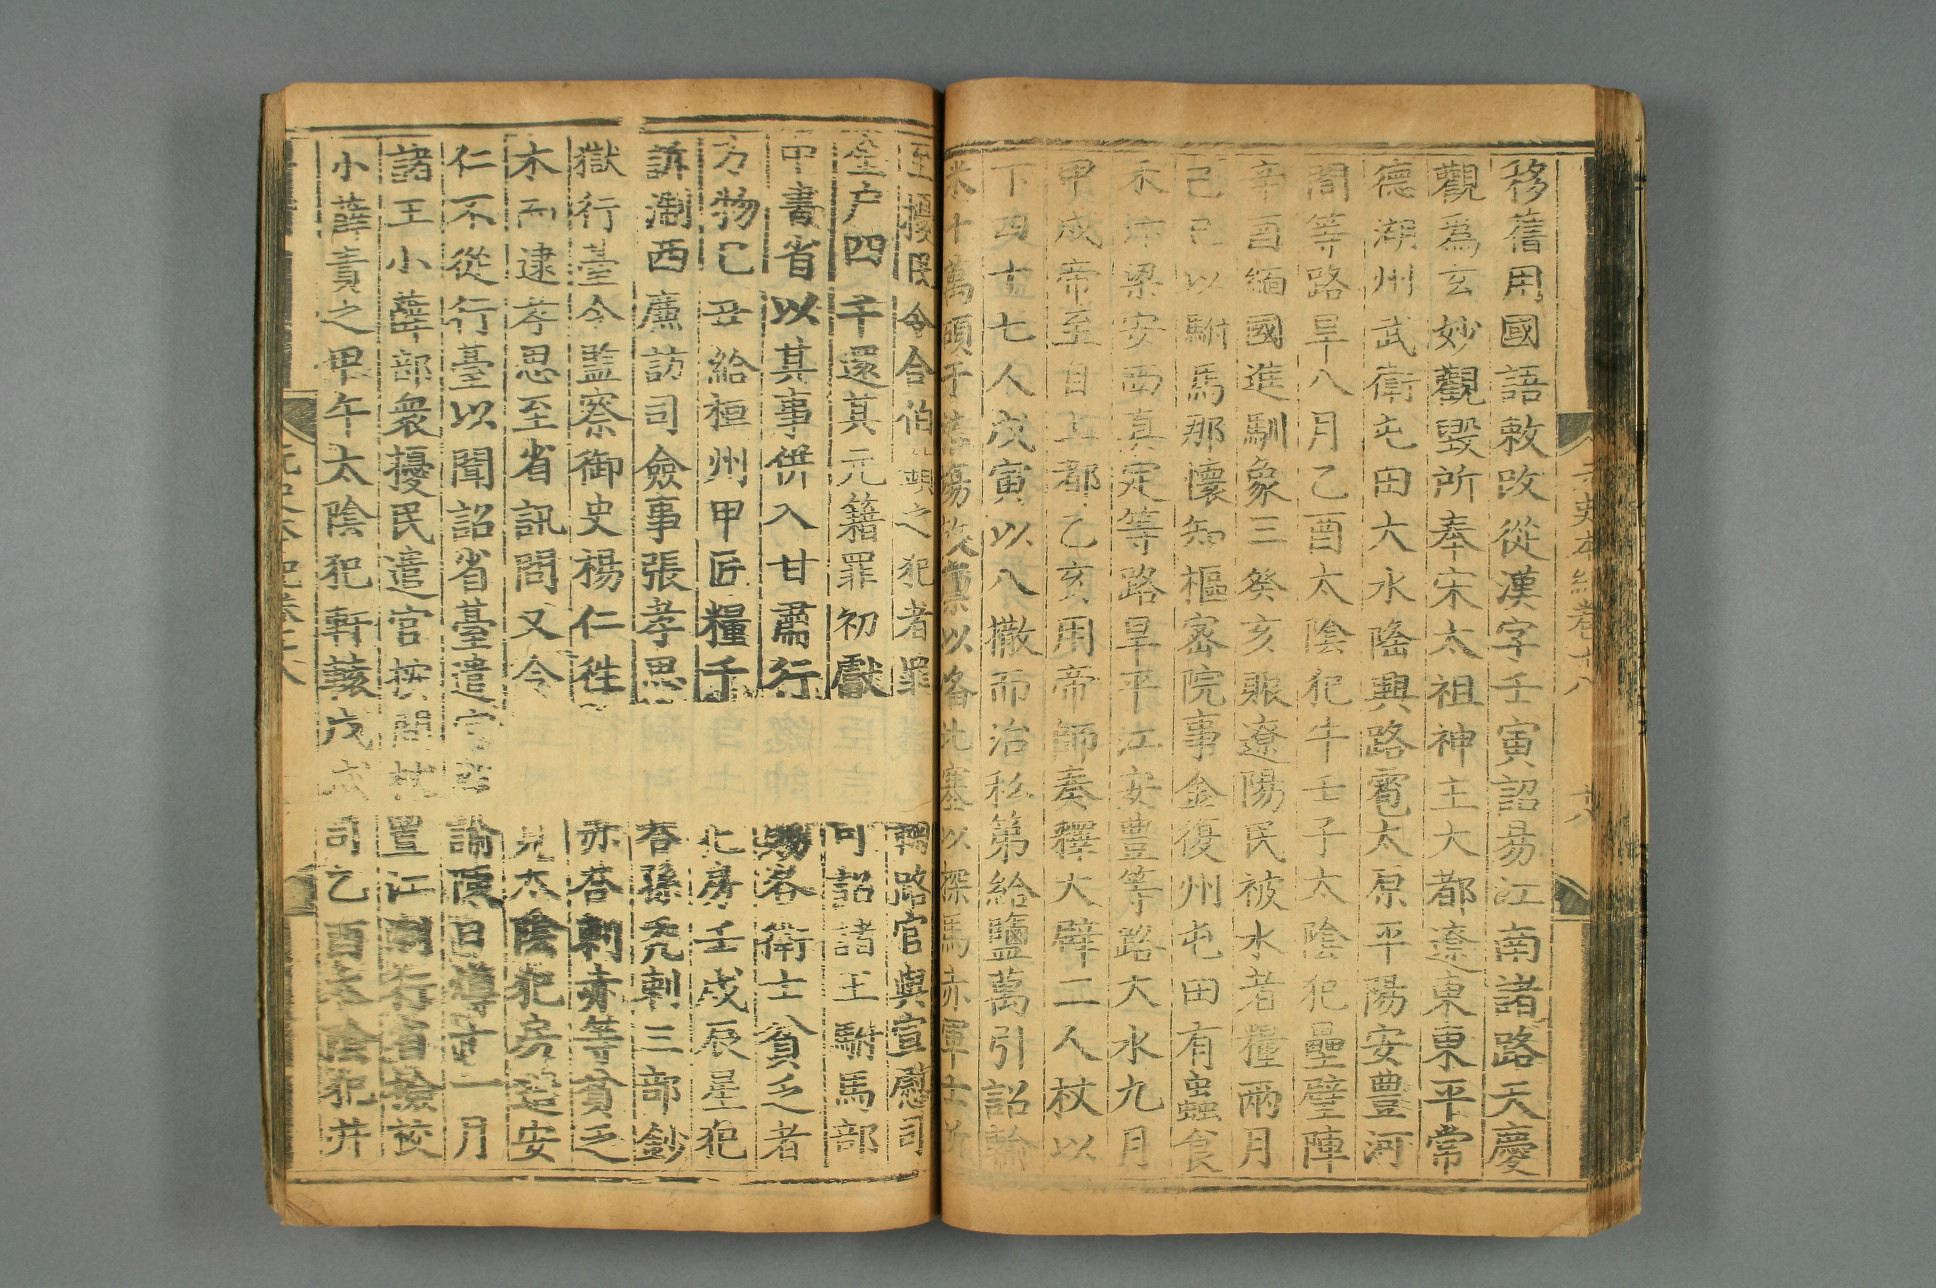 移舊用國語敕改從漢字壬寅詔易江南諸路天慶
觀爲玄妙觀毀所奉宋太祖神主大都遼東東平常
德湖州武衛屯田大水隆興路雹太原平陽安豐河
間等路旱八月乙酉太陰犯牛壬子太陰犯壘壁陣
辛酉緬國進馴象三癸亥賑遼陽民被水者糧兩月
己巳以駙馬那懷知樞密院事金復州屯田有蟲食
禾 梁安西真定等路旱平江安豐等路大水九月
甲戌帝至自上都乙亥用帝師奏釋大辟二人杖以
下四十七人戊寅以八撒而治私第給鹽萬引詔輸
米十萬碩于 以備北塞以探馬赤軍士所
至擾民令合伯 之犯者罪 路官與宣慰司
金户四千還其元籍罪初獻 可詔諸王駙馬部
中書省以其事併入甘肅行 賜各衛士貧乏者
方物己丑給桓州甲匠糧千 七房壬戌辰星犯
訴淛西廉訪司僉事張孝思 吞孫禿剌三部鈔
獄行臺令監察御史楊仁往 赤荅剌赤等貧乏
木而逮孝思至省訊問又令 見太陰犯房 安
仁不從行臺以聞詔省臺遣官 諭 十一月
諸王小薛部衆擾民遣官按問杖 置江南行省檢校
小薛責之甲午太陰犯軒轅戊戌 司乙酉太陰犯井
元史本紀卷十八